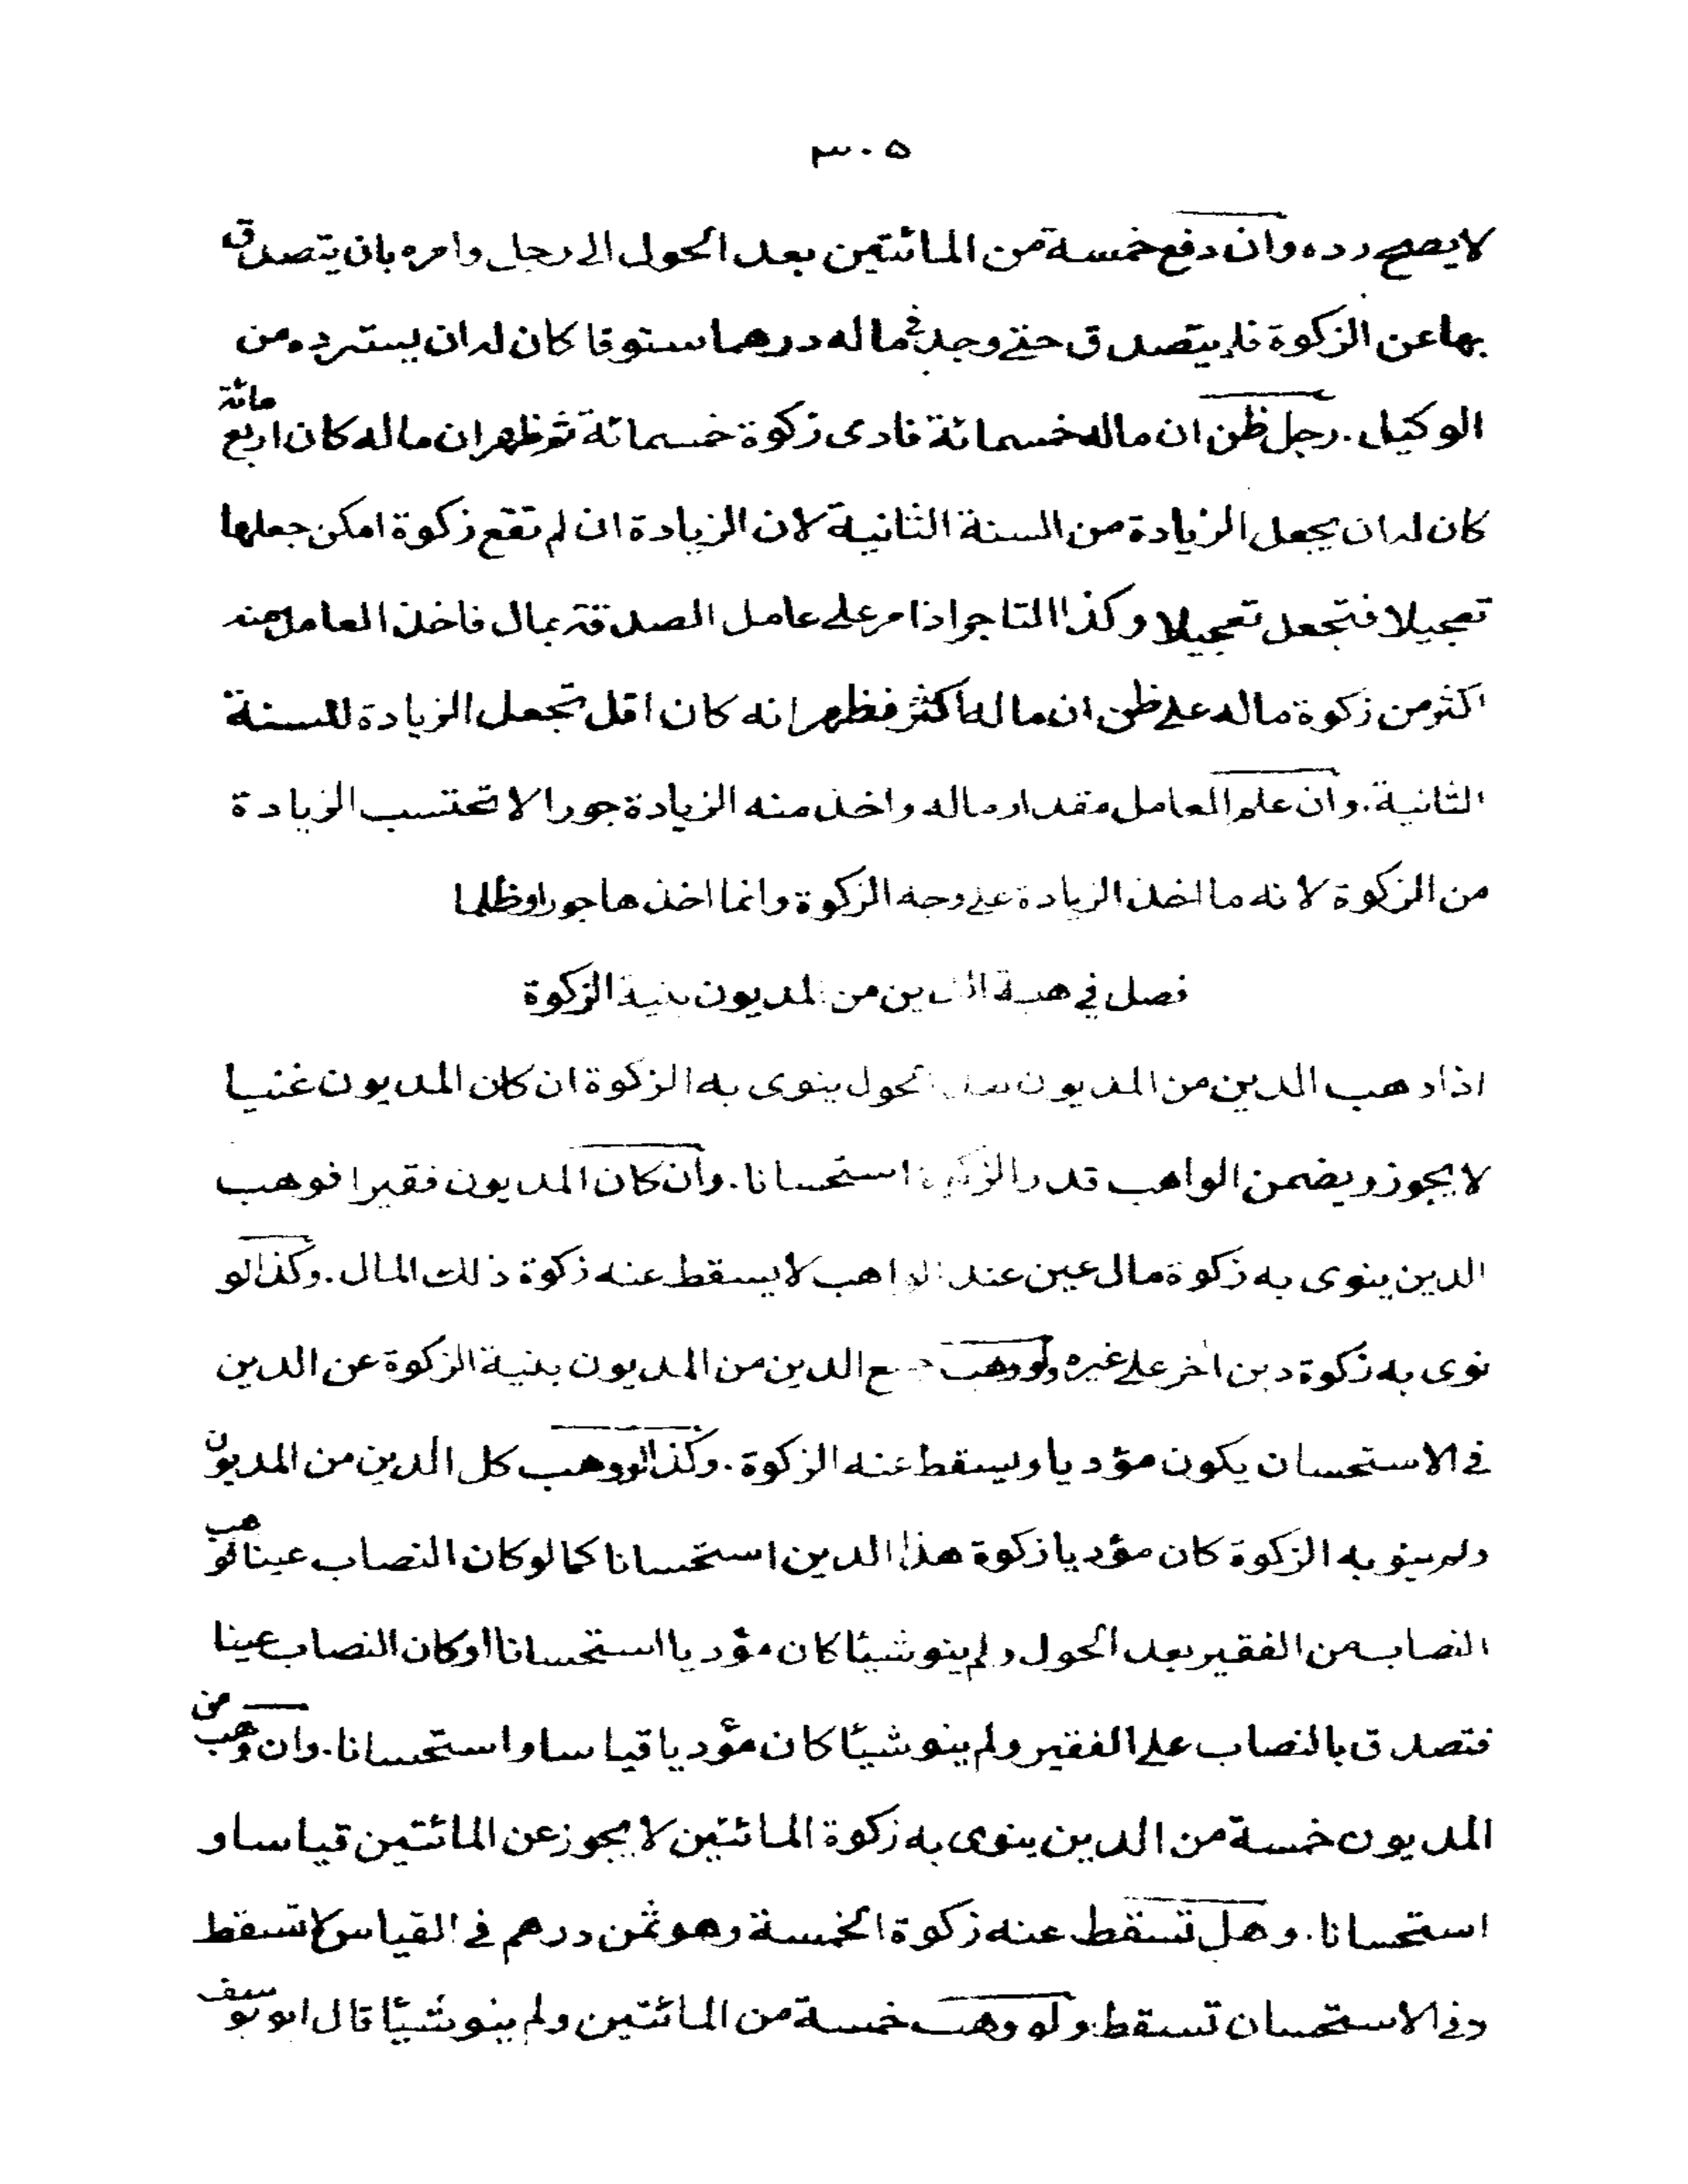 ٣٠۵
لا يصح رده وان دفع خمسة من المائتين بعد الحول الى رجل وامره بان يتصدق
بها عن الزكوة فلم يتصدق حتى وجد في ماله درهما ستوقا كان له ان يسترده من
الوكيل. رجل ظن ان ماله خمسمائة فادى زكوة خمسمائة ثم ظهر ان ماله كان اربع مائة
كان له ان يجعل الزيادة من السنة الثانية لان الزيادة ان لم تقع زكوة امكن جعلها
تعجيلا فتجعل تعجيلا وكذا التاجر اذا مر على عامل الصدقة بمال فاخذ العامل منه
اكثر من زكوة ماله على ظن ان ماله اكثر فظهر انه كان اقل تجعل الزيادة للسنة
الثانية. وان علم العامل مقدار ماله واخذ منه الزيادة جورا لا تحتسب الزيادة
من الزكوة لانه ما اخذ الزيادة على وجه الزكوة وانما اخذها جورا وظلما
فصل في هبة الدين من المديون بنية الزكوة
اذا وهب الدين من المديون بعد الحول ينوى به الزكوة ان كان المديون غنيا
لا يجوز ويضمن الواهب قدر الزكوة استحسانا. وان كان المديون فقيرا فوهب
الدين ينوى به زكوة مال عين عند الواهب لا يسقط عنه زكوة ذلك المال. وكذا لو
نوى به زكوة دين اخر على غيره ولو وهب جميع الدين من المديون بنية الزكوة عن الدين
في الاستحسان يكون مؤديا ويسقط عنه الزكوة. وكذا لو وهب كل الدين من المديون
ولم ينو به الزكوة كان مؤديا زكوة هذا الدين استحسانا كما لو كان النصاب عينا لو هب
النصاب من الفقير بعد الحول ولم ينو شيئا كان مؤديا استحسانا او كان النصاب عينا
فتصدق بالنصاب على الفقير ولم ينو شيئا كان مؤديا قياسا واستحسانا. وان وهب من
المديون خمسة من الدين ينوى به زكوة المائتين لا يجوز عن المائتين قياسا و
استحسانا. وهل تسقط عنه زكوة الخمسة وهو ثمن درهم في القياس لا تسقط
وفي الاستحسان تسقط ولو وهب خمسة من المائتين ولم ينو شيئا قال ابو يوسف